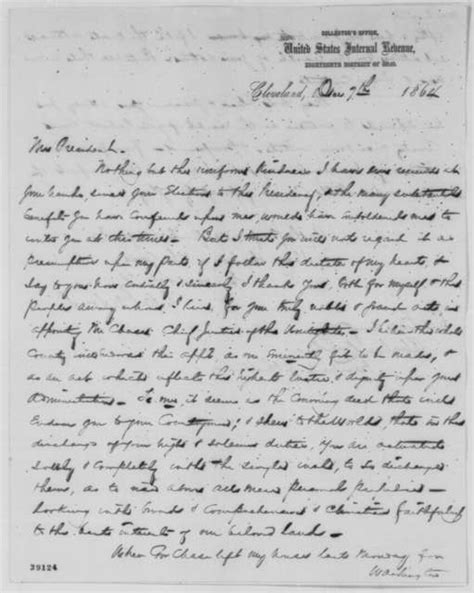 COLLECTOR'S OFFICE,
United States Internal Revenue,
EIGHTEENTH DISTRICT OF OHIO.
Cleveland, Dec 7th 1864
Mr President.
Nothing but the uniform kindness I have ever received at
your hands, since your election to the Presidency, & the many
benefits you have conferred upon me, would have emboldened me to
write you at this time - But I trust you will not regard it as
presumption upon my part, if I follow the dictate of my heart, &
say to you how entirely & sincerely I thank you, both for myself & the
people among whom I live, for your truly noble & grand act, in
appointing Mr Chase Chief Justice of the - I believe the whole
Country this appt, as one eminently fit to be made, & as
an act which reflects the highest lustre, & dignity upon your
Administration - To me it seems as the crowning deed that will
Endear you to your Countrymen, & shows to the World, that in the
discharge of your high & solemn duties, you are actuated
solely & completely with the single wish, to discharge
them, as to rise above all mere personal
looking with the & Comprehensive & faithfully
to the best interests of our beloved land -
When Gov Chase left my house last Monday for
Washington
39124